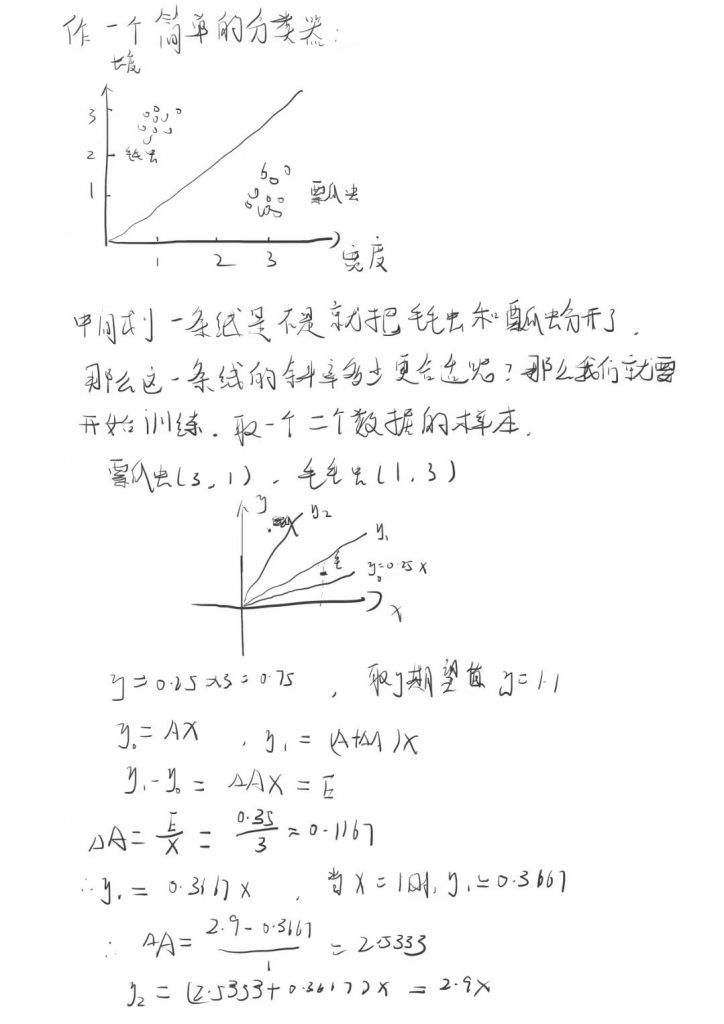 作一个简单的分类器:
长度
3
2
毛虫
1
瓢虫
1 2 3
宽度
中间划一条线是不是就把毛毛虫和瓢虫分开了.
那么这一条线的斜率多少更合适呢?那么我们就要
开始训练.取一个二个数据的样本.
瓢虫(3,1)、毛毛虫(1,3)
y
y₂
y₁
y₀=0.25x
x
y=0.25×3=0.75 , 取y期望值y=1.1
y₀=AX , y₁=(A+ΔA)X
y₁-y₀=ΔAX=E
ΔA=E/X=0.35/3≈0.1167
∴y₁=0.3667x , 当X=1时,y₁=0.3667
∴ΔA=(2.9-0.3667)/1=2.5333
y₂=(2.5333+0.3667)x=2.9x